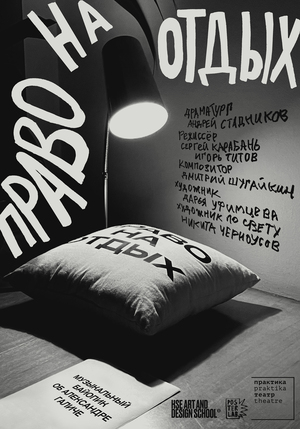 ПРАВО НА ОТДЫХ
ДРАМАТУРГ
АНДРЕЙ СТАДНИКОВ
РЕЖИССЕР
СЕРГЕЙ КАРАБАНЬ
ИГОРЬ ТИТОВ
КОМПОЗИТОР
ДМИТРИЙ ШУГАЙКИН
ХУДОЖНИК
ДАРЬЯ УФИМЦЕВА
ХУДОЖНИК ПО СВЕТУ
НИКИТА ЧЕРНОУСОВ
ПРАВО
НА
ОТДЫХ
МУЗЫКАЛЬНЫЙ
БАЙОПИК
ОБ АЛЕКСАНДРЕ
ГАЛИЧЕ
HSE ART AND
DESIGN SCHOOL
POS
TER
LAB
практика
praktika
театр
theatre